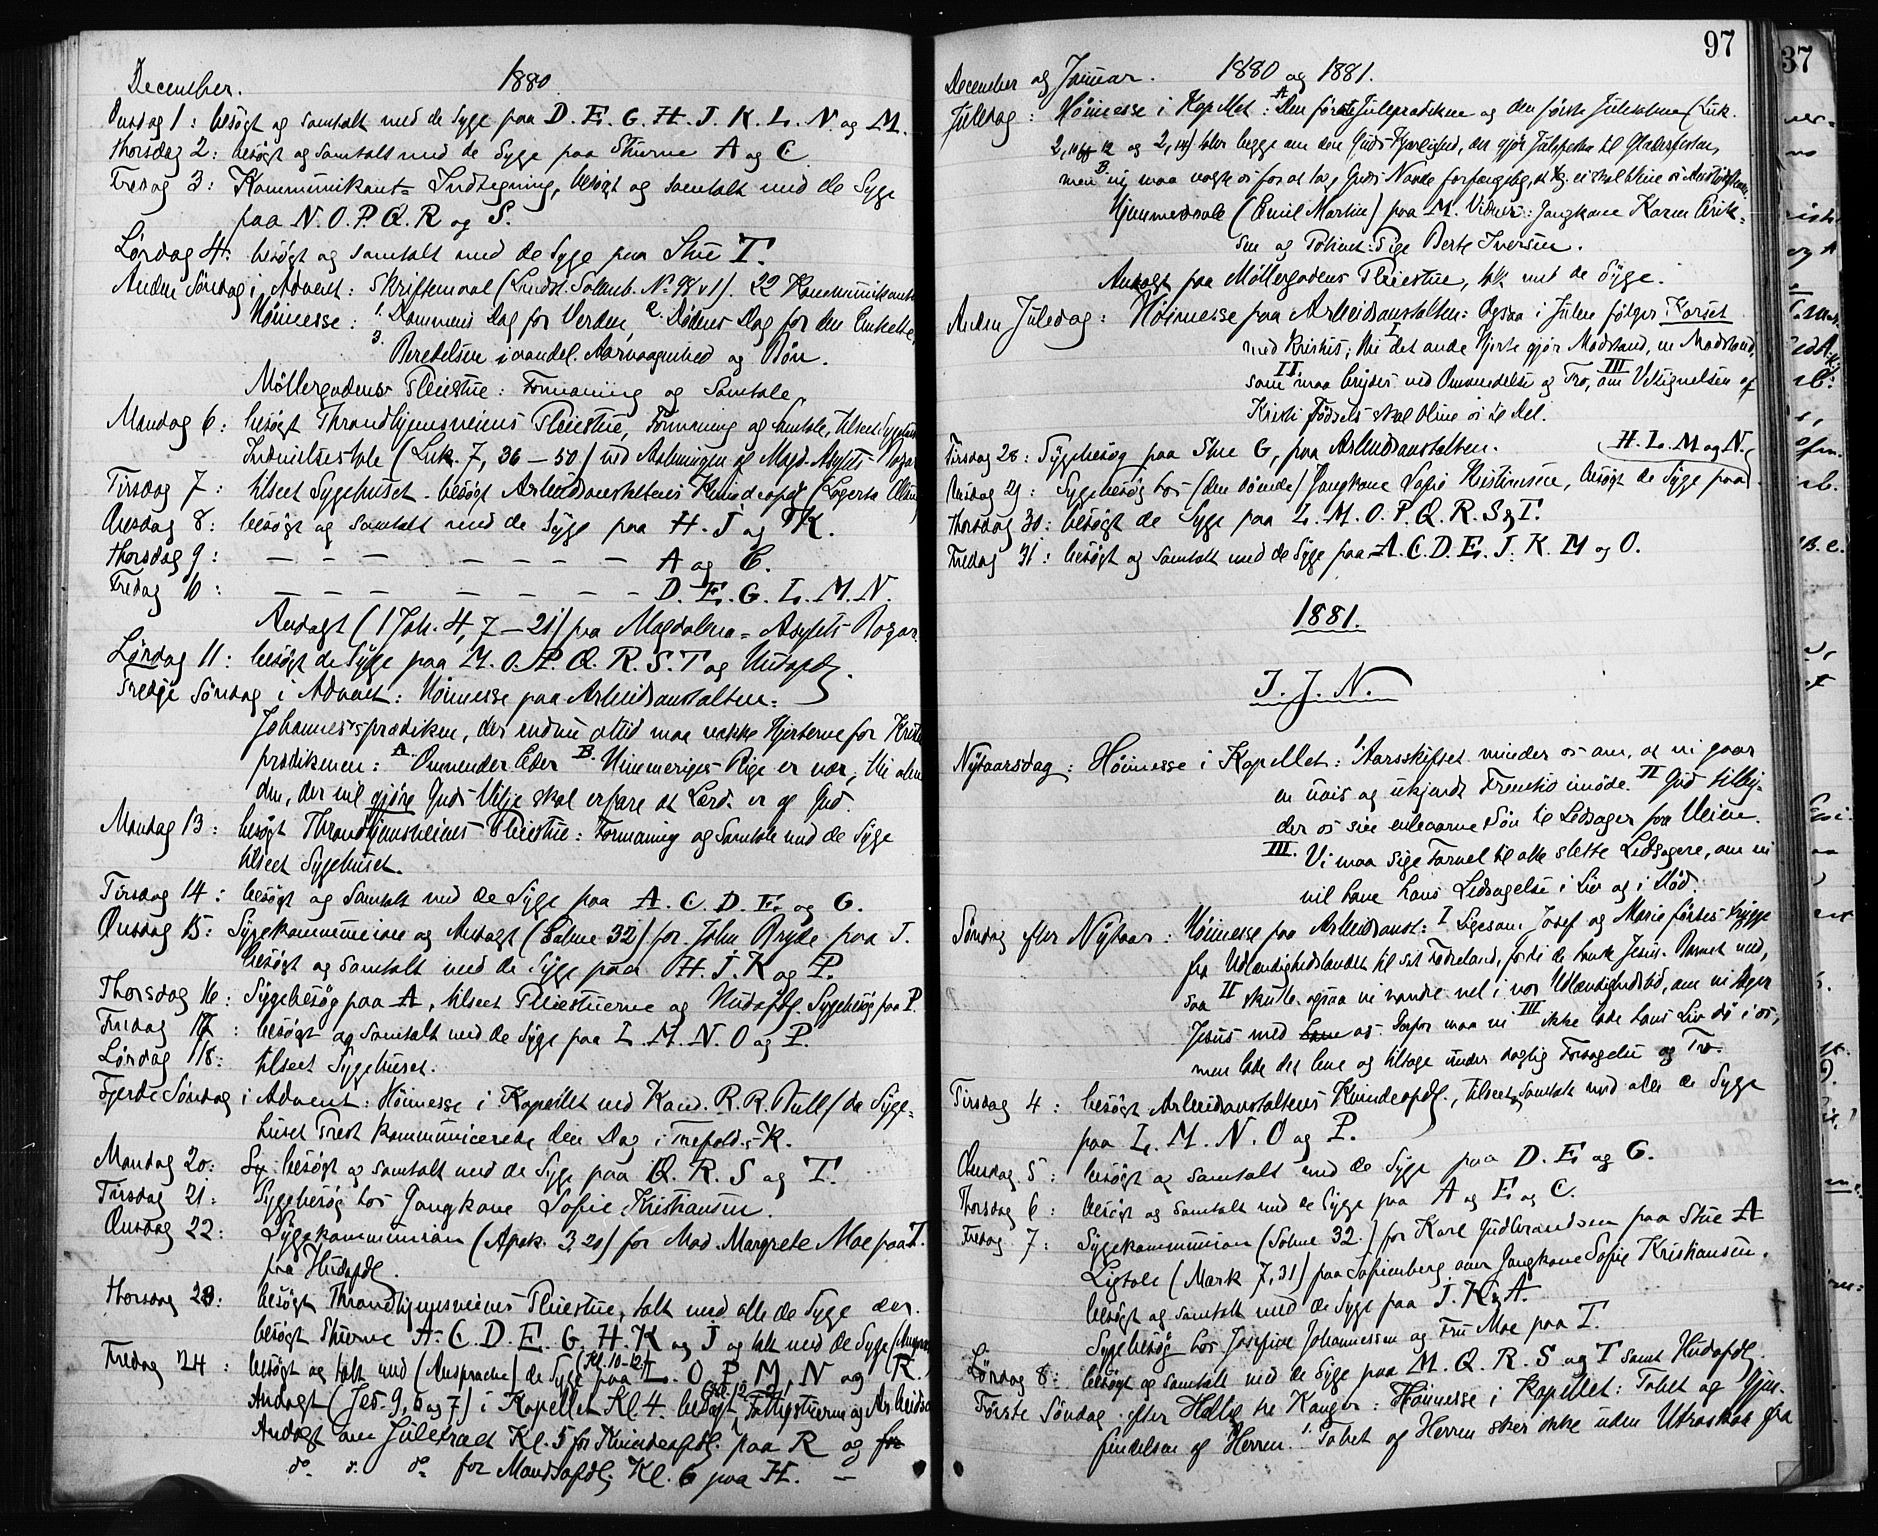 December. 1880.
Onsdag 1: besøgt og samtalt med de Syge paa D. E. G. H. J. K. L. N. og M.
Thorsdag 2: besøgt og samtalt med de Syge paa Stuerne A og C.
Fredag 3: Kommunikant-Indtegning, besøgt og samtalt med de Syge
paa N. O. P. Q. R og S.
Lørdag 4: besøgt og samtalt med de Syge paa Stue T.
Anden Søndag i Advent: Skriftemaal (Landst. Salmb. No. 98 v 1). 22 Kommunikanter
Høimesse: 1. Dommens Dag for Verden, 2. Dødens Dag for den Enkelte,
3. Beredelsen i vandel. Aarvaagenhed og Bøn.
Møllergadens Pleiestue: Formaning og Samtale
Mandag 6: besøgt Throndhjemsveiens Pleiestue, Formaning og Samtale, tilseet Sygehuset
Indvielsestale (Luk. 7, 36-50) ved Aabningen af Magd. Asylets
Tirsdag 7: tilseet Sygehuset. besøgt Arbeidsanstaltens Kvindeafdl.
Onsdag 8: besøgt og samtalt med de Syge paa H. J og K.
Thorsdag 9: — — — — — — — A og C.
Fredag 10: — — — — — — — D. E. G. L. M. N.
Andagt (1 Joh. 4, 7-21) paa Magdalena-Asylets
Lørdag 11: besøgt de Syge paa M. O. P. Q. R. S. T og Hudafdl.
Tredje Søndag i Advent: Høimesse paa Arbeidsanstalten:
Johannesprædiken, der endnu altid maa vække Hjerterne for
prædikenen: A Omvender Eder B. Himmeriges Rige er nær, thi
den, der vil gjøre Guds Vilje skal erfare at Lærd. er af Gud.
Mandag 13: besøgt Throndhjemsveiens Pleiestue: Formaning og Samtale med de Syge
tilseet Sygehuset.
Tirsdag 14: besøgt og samtalt med de Syge paa A. C. D. E. og G.
Onsdag 15: Sygekommunion og Andagt (Salme 32) for John Bryde paa J.
besøgt og samtalt med de Syge paa H. J. K og P.
Thorsdag 16: Sygebesøg paa A, tilseet Pleiestuerne og Hudafdl. Sygebesøg paa P.
Fredag 17: besøgt og samtalt med de Syge paa L. M. N. O og P.
Lørdag 18: tilseet Sygehuset.
Fjerde Søndag i Advent: Høimesse i Kapellet ved Kand. R. R. Bull (da Syge-
husets Prest kommunicerede den Dag i Trefold.-K.
Mandag 20: Sy besøgt og samtalt med de Syge paa Q. R. S og T.
Tirsdag 21: Sygebesøg hos Gangkone Sofie Kristiansen.
Onsdag 22: Sygekommunion (Apok. 3, 20) for Mad. Margrete Moe paa T.
paa Hudafdl.
Thorsdag 23: besøgt Throndhjemsveiens Pleiestue, talt med alle de Syge der.
besøgt Stuerne A. C. D. E. G. H. K og J og talt med de Syge
Fredag 24: besøgt og talt med (Ansprache) de Syge (Kl. 10-12) paa L. O. P. M. N og R.
Andagt (Jes. 9, 6 og 7) i Kapellet Kl. 4. besøgt Fattigstuerne og Arbeidsa
Andagt om Juletræet Kl. 5 for Kvindeafdl. paa R og for
do. do. do. for Mandsafdl. Kl. 6 paa H. —
97
37
December og Januar. 1880 og 1881.
Juledag: Høimesse i Kapellet: A Den første Juleprædiken og den første Julesalme (Luk.
2, 10-12 og 2, 14) lær begge om den Guds Kjærlighed, der gjør Julefesten til Glædesfesten,
men B vi maa vogte os for at tage Guds Naade forfængelig, at
Hjemmedaab (Emil Martin) paa M. Vidner: Gangkone Karen Erik-
sen og Pige Berte Iversen.
Andagt paa Møllergadens Pleiestue, talt med de Syge.
Anden Juledag: Høimesse paa Arbeidsanstalten: Ogsaa i Julen følger Korset
med Kristus; thi I det onde Hjerte gjør Modstand, en Modstand,
II som maa brydes ved Omvendelse og Tro, III om Velsignelsen af
Kristi Fødsel skal blive os til Del.
Tirsdag 28: Sygebesøg paa Stue G, paa Arbeidsanstalten. H. L. M og N.
Onsdag 29: Sygebesøg hos (den døende) Gangkone Sofie Kristiansen, besøgt de Syge paa
Thorsdag 30: besøgt de Syge paa L. M. O. P. Q. R. S og T.
Fredag 31: besøgt og samtalt med de Syge paa A. C. D. E. J. K. M og O.
1881.
I. J. N.
Nytaarsdag: Høimesse i Kapellet: I Aarsskiftet minder os om, at vi gaar
en uvis og ukjendt Fremtid imøde. II Gud tilby-
der os sin enbaarne Søn til Ledsager paa Veien.
III. Vi maa sige Farvel til alle slette Ledsagere, om vi
vil have hans Ledsagelse i Liv og i Død.
Søndag efter Nytaar: Høimesse paa Arbeidsanst: I Ligesom Josef og Marie førtes trygge
fra Udlændighedslandet til sit Fædreland, fordi de havde Jesus-Barnet med,
saa II skulle ogsaa vi vandre vel i vor Udlændighedstid, om vi tager
Jesus med os. Derfor maa vi III ikke lade hans Liv dø i os,
men lade det leve og tiltage under daglig Forsagelse og Tro.
Tirsdag 4: besøgt Arbeidsanstaltens Kvindeafdl., tilseet, samtalt med alle de Syge
paa L. M. N. O og P.
Onsdag 5: besøgt og samtalt med de Syge paa D. E og G.
Thorsdag 6: besøgt og samtalt med de Syge paa A og E og C.
Fredag 7: Sygekommunion (Salme 32.) for Karl Gudbrandsen paa Stue A
Ligtale (Mark 7, 31) paa Sofienberg over Gangkone Sofie Kristiansen.
besøgt og samtalt med de Syge paa J. K og A.
Sygebesøg hos Josefine Johannessen og Fru Moe paa T.
Lørdag 8: besøgt og samtalt med de Syge paa M. Q. R. S og T samt Hudafdl.
Første Søndag efter Hellig tre Konger: Høimesse i Kapellet: Tabet og Gjen-
findelsen af Herren. 1. Tabet af Herren sker ikke uden Utroskab fra